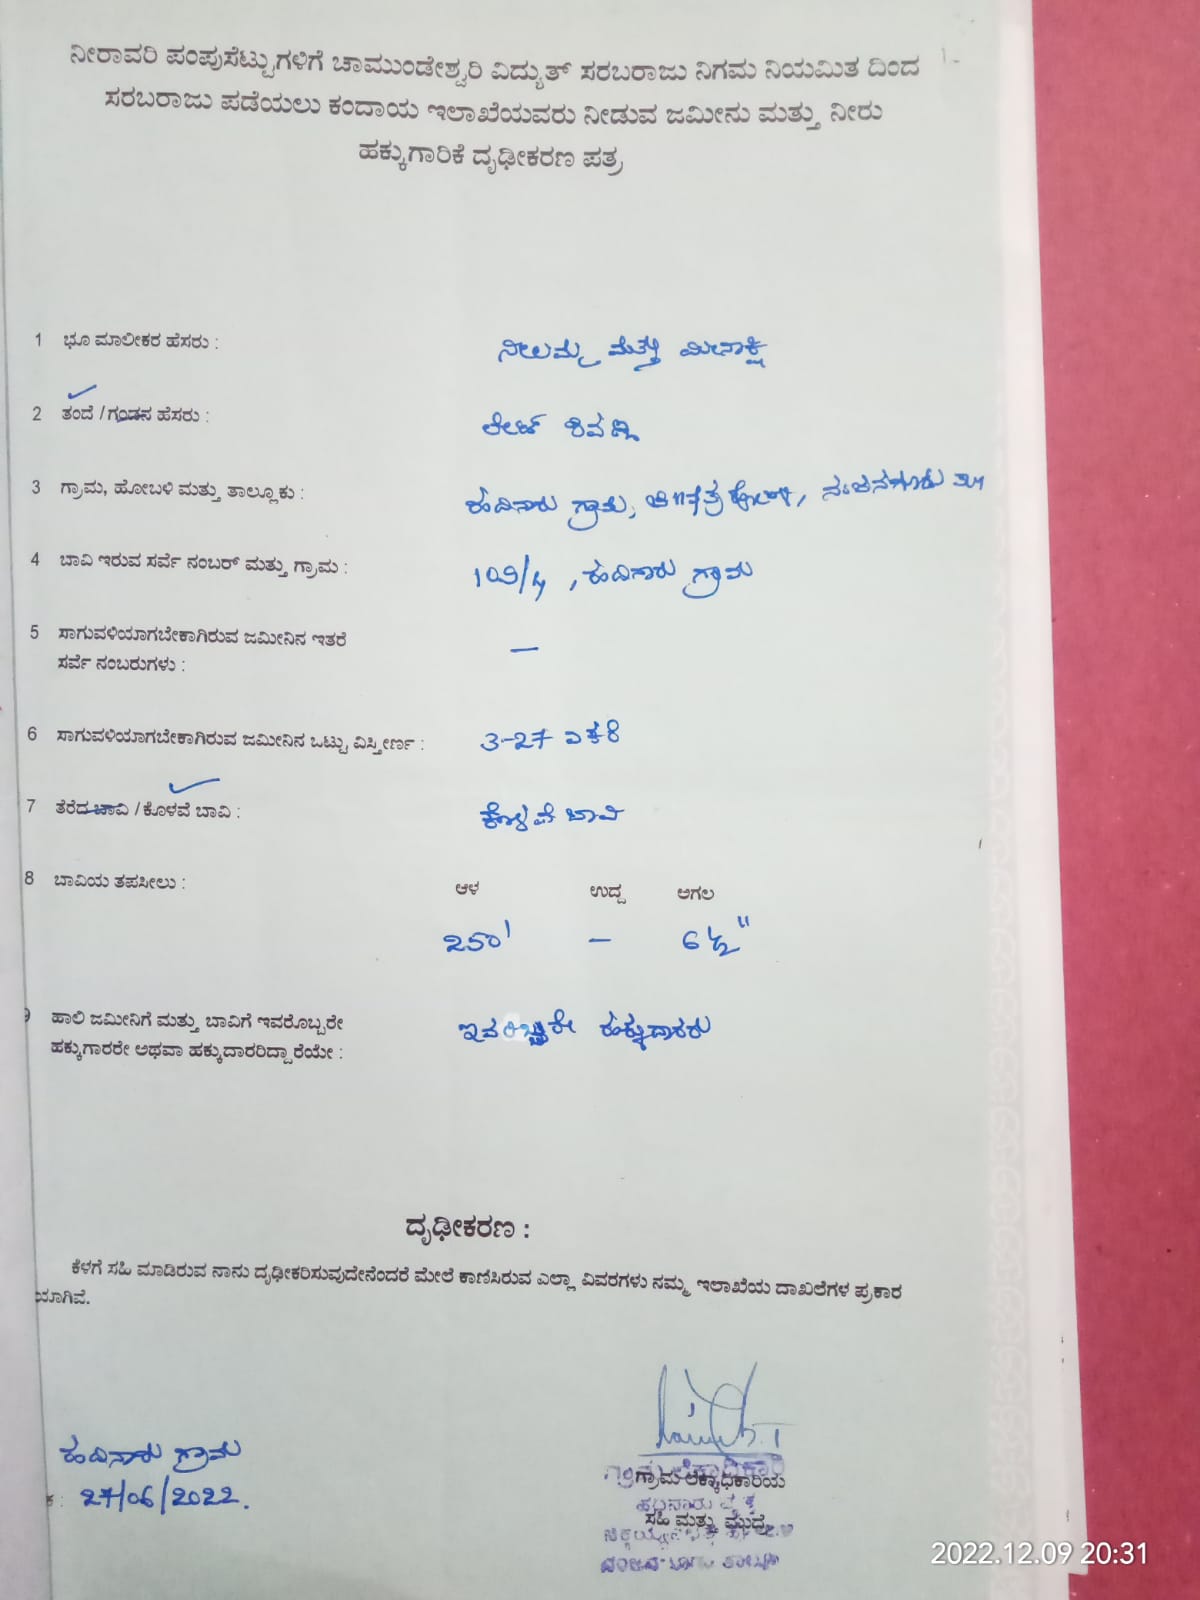 ನೀರಾವರಿ ಪಂಪುಸೆಟ್ಟುಗಳಿಗೆ ಚಾಮುಂಡೇಶ್ವರಿ ವಿದ್ಯುತ್ ಸರಬರಾಜು ನಿಗಮ ನಿಯಮಿತ ದಿಂದ
ಸರಬರಾಜು ಪಡೆಯಲು ಕಂದಾಯ ಇಲಾಖೆಯವರು ನೀಡುವ ಜಮೀನು ಮತ್ತು ನೀರು
ಹಕ್ಕುಗಾರಿಕೆ ದೃಢೀಕರಣ ಪತ್ರ
1 ಭೂ ಮಾಲೀಕರ ಹೆಸರು : ನೀಲಮ್ಮ ಮತ್ತು ಮೀನಾಕ್ಷಿ
2 ತಂದೆ / ಗಂಡನ ಹೆಸರು : ಲೇಟ್ ಶಿವಣ್ಣ
3 ಗ್ರಾಮ, ಹೋಬಳಿ ಮತ್ತು ತಾಲ್ಲೂಕು : ಹದಿನಾರು ಗ್ರಾಮ, ನಂಜನಗೂಡು ತಾ॥
4 ಬಾವಿ ಇರುವ ಸರ್ವೆ ನಂಬರ್ ಮತ್ತು ಗ್ರಾಮ : ಹದಿನಾರು ಗ್ರಾಮ
5 ಸಾಗುವಳಿಯಾಗಬೇಕಾಗಿರುವ ಜಮೀನಿನ ಇತರೆ —
ಸರ್ವೆ ನಂಬರುಗಳು :
6 ಸಾಗುವಳಿಯಾಗಬೇಕಾಗಿರುವ ಜಮೀನಿನ ಒಟ್ಟು ವಿಸ್ತೀರ್ಣ : 3-27 ಎಕರೆ
7 ತೆರೆದ ಬಾವಿ / ಕೊಳವೆ ಬಾವಿ : ಕೊಳವೆ ಬಾವಿ
8 ಬಾವಿಯ ತಪಸೀಲು : ಆಳ ಉದ್ದ ಅಗಲ
250' — 6½"
9 ಹಾಲಿ ಜಮೀನಿಗೆ ಮತ್ತು ಬಾವಿಗೆ ಇವರೊಬ್ಬರೇ ಇವರಿಬ್ಬರೇ ಹಕ್ಕುದಾರರು
ಹಕ್ಕುಗಾರರೇ ಅಥವಾ ಹಕ್ಕುದಾರರಿದ್ದಾರೆಯೇ :
ದೃಢೀಕರಣ :
ಕೆಳಗೆ ಸಹಿ ಮಾಡಿರುವ ನಾನು ದೃಢೀಕರಿಸುವುದೇನೆಂದರೆ ಮೇಲೆ ಕಾಣಿಸಿರುವ ಎಲ್ಲಾ ವಿವರಗಳು ನಮ್ಮ ಇಲಾಖೆಯ ದಾಖಲೆಗಳ ಪ್ರಕಾರ
ಯಾಗಿವೆ.
ಹದಿನಾರು ಗ್ರಾಮ
ಕ : 27/06/2022.
ಗ್ರಾಮ ಲೆಕ್ಕಾಧಿಕಾರಿ
ಗ್ರಾಮ ಲೆಕ್ಕಾಧಿಕಾರಿಯ
ಹದಿನಾರು ವೃತ್ತ
ಸಹಿ ಮತ್ತು ಮುದ್ರೆ
ನಂಜನಗೂಡು ತಾಲ್ಲೂಕು
2022.12.09 20:31